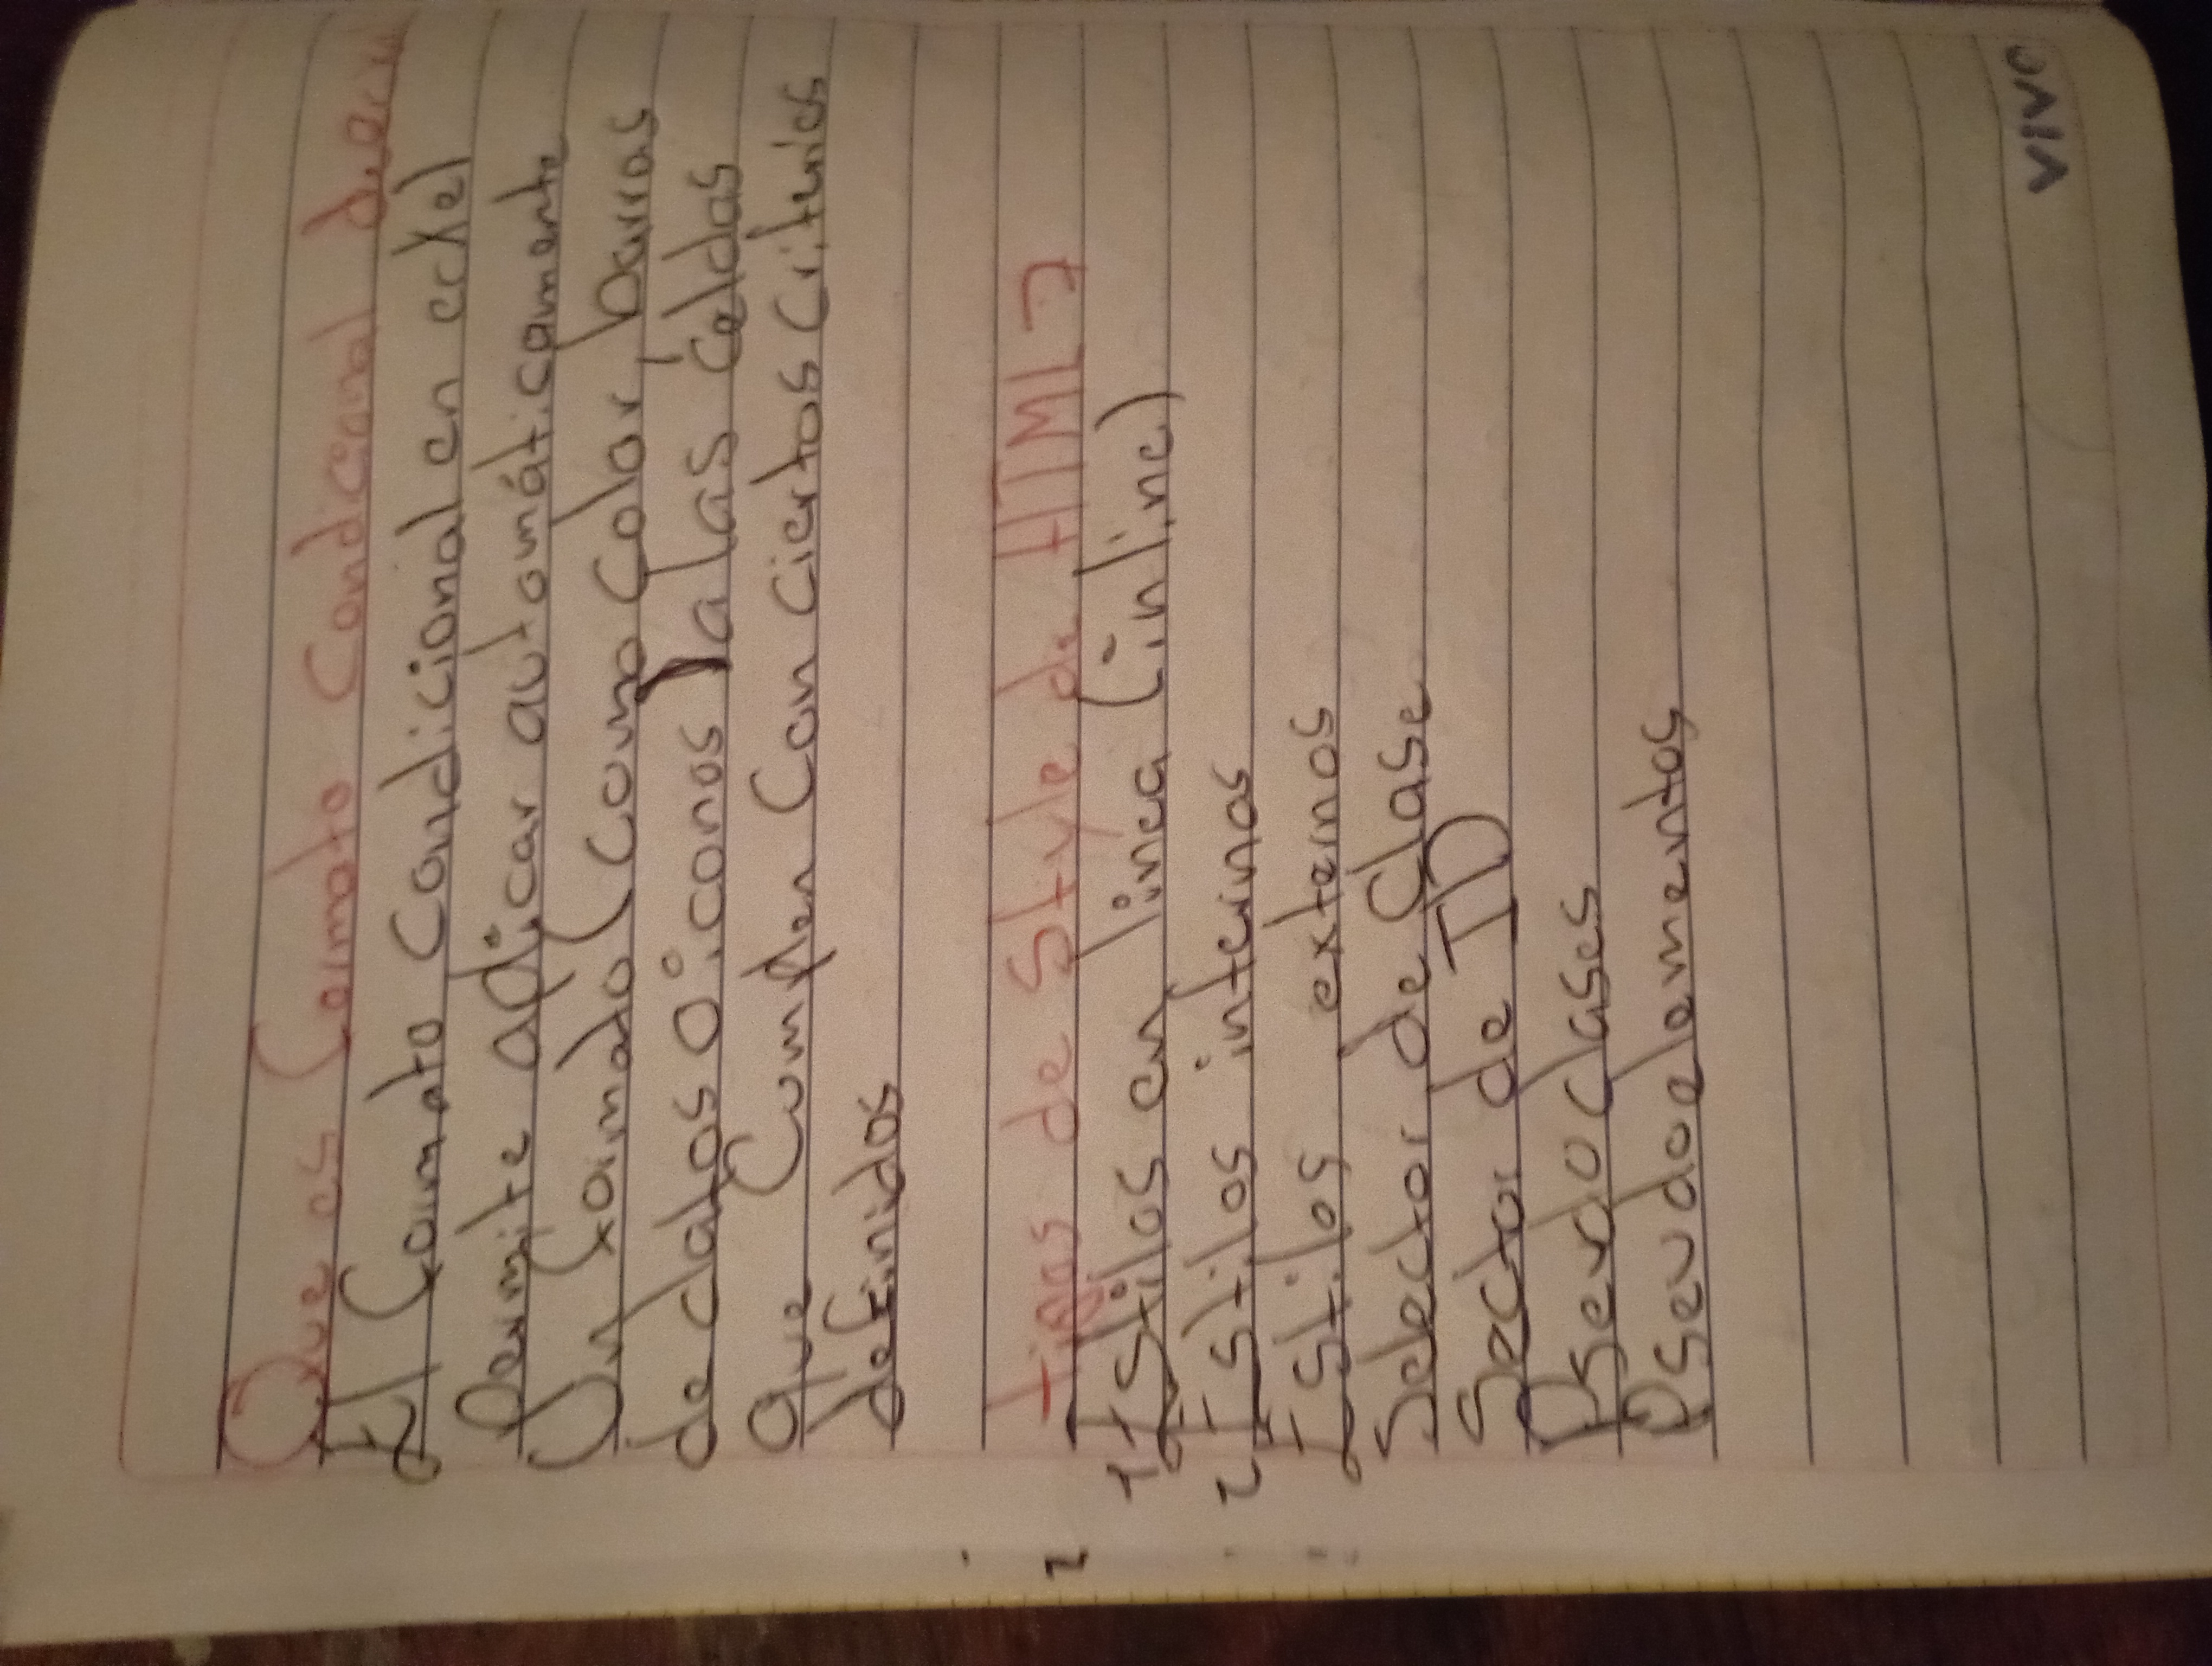 Que es Formato Condicional de ex
El Formato Condicional en eckel
Permite aplicar automáticamente
Un Foimato (Como Color, barras
de datos o iconos) a las Celdas
que Cumplen Con ciertos Criterios
definidos
Tipos de Style de HTML 7
1 Estilos en linea (inline)
2 Estilos internos
Estilos externos
Selector de Clase
Sector de ID
Pseudo clases
Pseudoelementos
VIVO
2